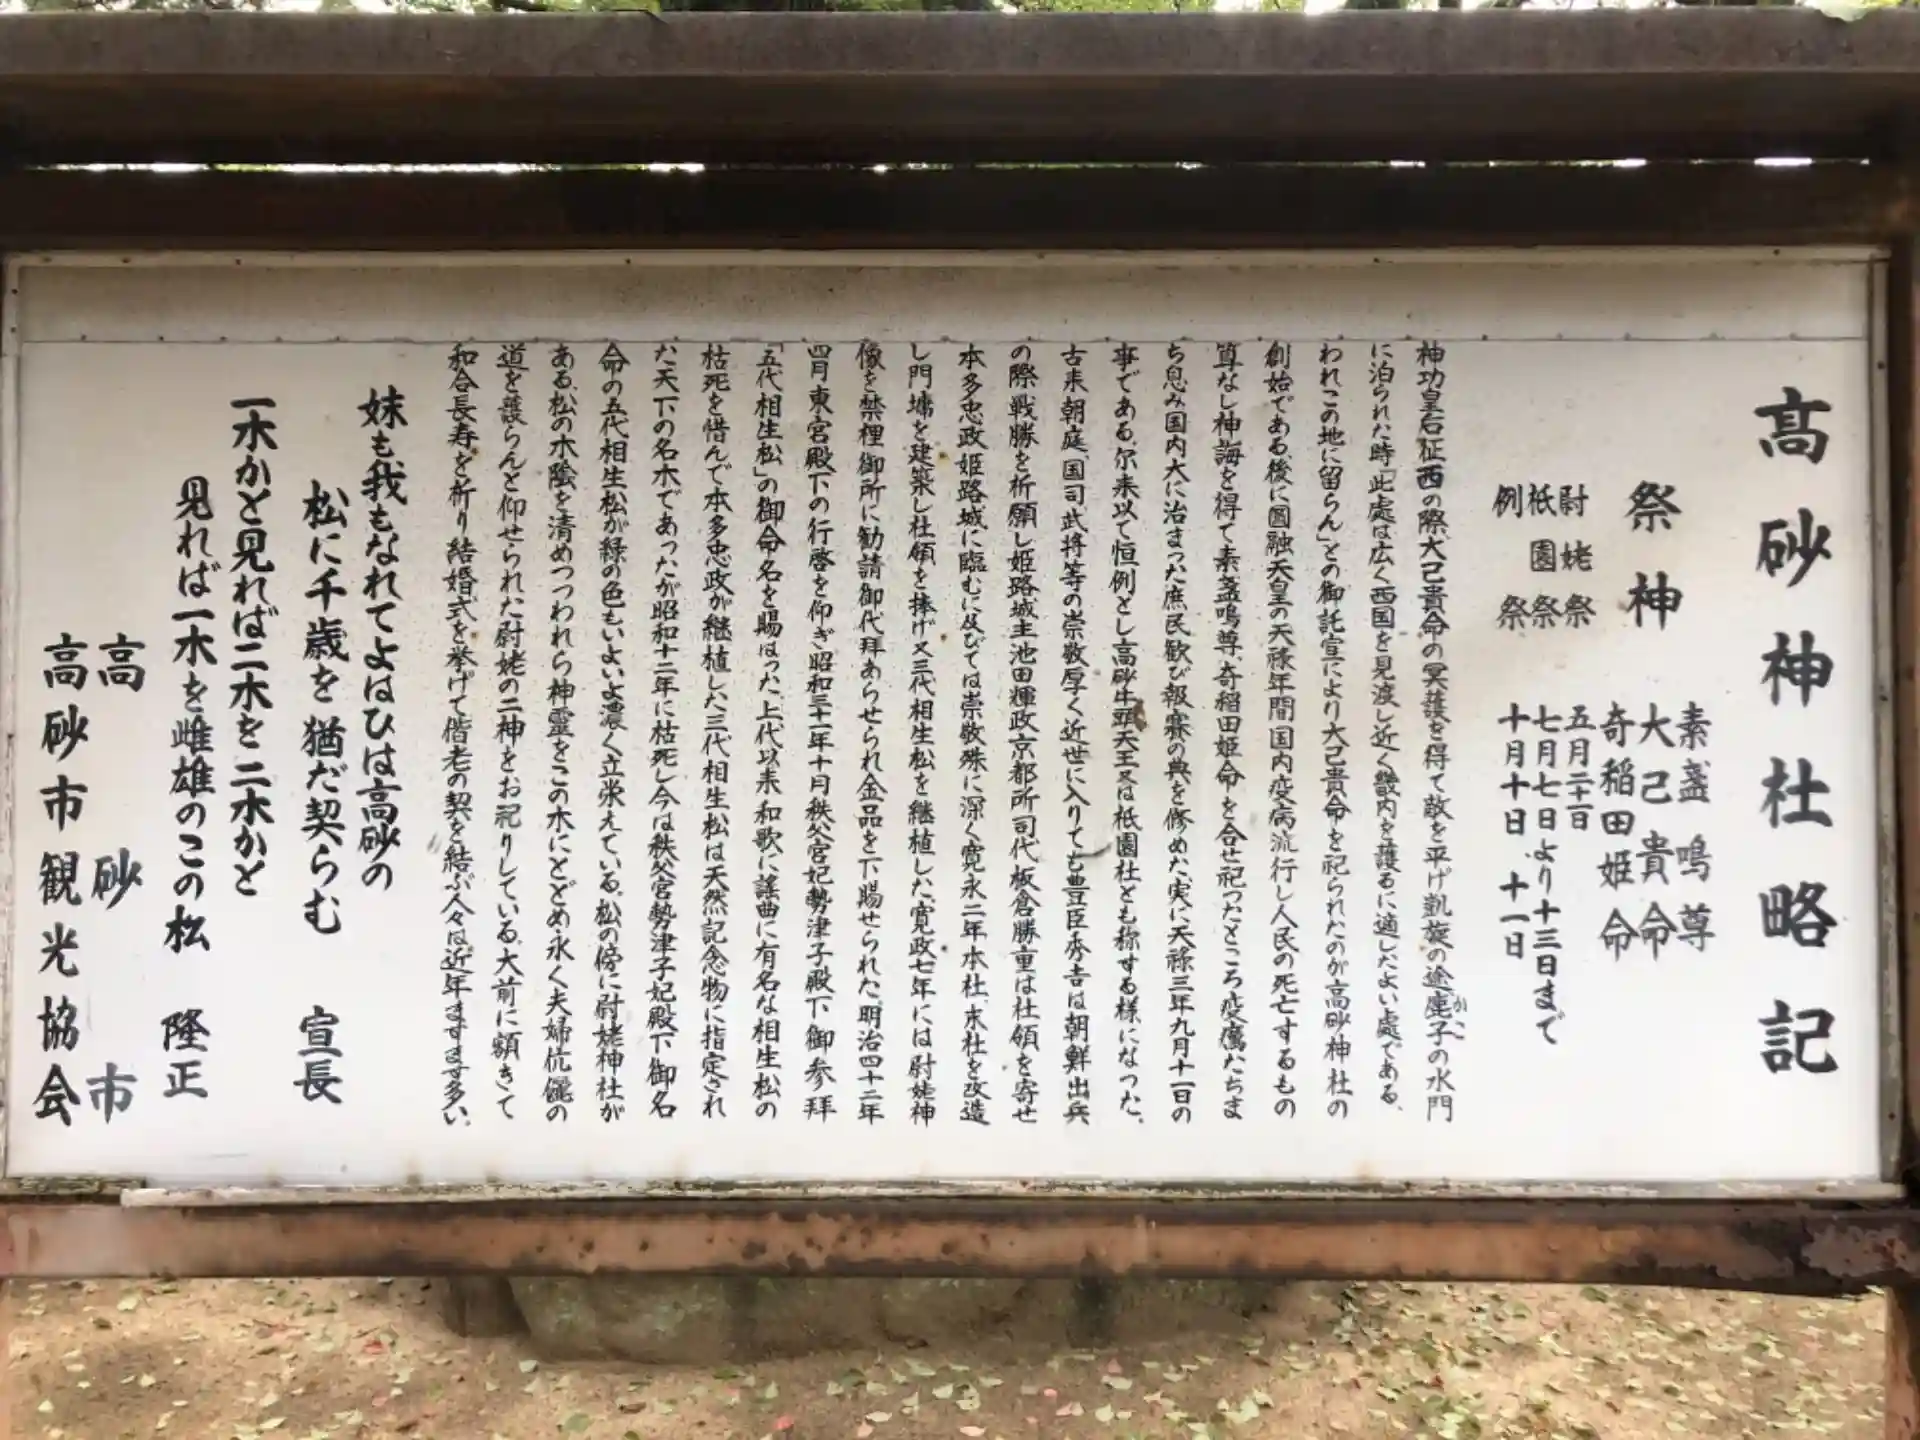 高砂神社略記
祭神
素盞嗚尊
大己貴命
奇稲田姫命
尉姥祭 五月二十一日
祇園祭 七月七日より十三日まで
例祭 十月十日、十一日
神功皇后征西の際、大己貴命の冥護を得て敵を平げ凱旋の途鹿子の水門
かこ
に泊られた時「此處は広く西国を見渡し近く畿内を護るに適したよい處である、
われこの地に留らん」との御託宣により大己貴命を祀られたのが高砂神社の
創始である。後に圓融天皇の天禄年間国内疫病流行し人民の死亡するもの
算なし神誨を得て素盞嗚尊、奇稲田姫命を合せ祀ったところ疫癘たちま
ち息み国内大に治まった庶民歓び報賽の典を修めた、実に天禄三年九月十一日の
事である、尓来以て恒例とし高砂牛頭天王又は祇園社とも称する様になった。
古来朝庭、国司武将等の崇敬厚く近世に入りても豊臣秀吉は朝鮮出兵
の際戦勝を祈願し姫路城主池田輝政京都所司代板倉勝重は社領を寄せ
本多忠政姫路城に臨むに及びては崇敬殊に深く寛永二年本社、末社を改造
し門墉を建築し社領を捧げ又三代相生松を継植した、寛政七年には尉姥神
像を禁裡御所に勧請御代拜あらせられ金品を下賜せられた、明治四十二年
四月東宮殿下の行啓を仰ぎ昭和三十一年十月秩父宮妃勢津子殿下御参拜
「五代相生松」の御命名を賜はった、上代以来和歌に謡曲に有名な相生松の
枯死を惜んで本多忠政が継植した三代相生松は天然記念物に指定され
た天下の名木であったが昭和十二年に枯死し今は秩父宮勢津子妃殿下御名
命の五代相生松が緑の色もいよいよ濃く立栄えている。松の傍に尉姥神社が
ある、松の木陰を清めつつわれら神靈をこの木にとどめ永く夫婦伉儷の
道を護らんと仰せられた尉姥の二神をお祀りしている、大前に額きて
和合長寿を祈り結婚式を挙げて偕老の契を結ぶ人々は近年ますます多い。
妹も我もなれてよはひは高砂の
松に千歳を猶だ契らむ 宣長
一木かと見れば二木を二木かと
見れば一木を雌雄のこの松 隆正
高砂市
高砂市観光協会